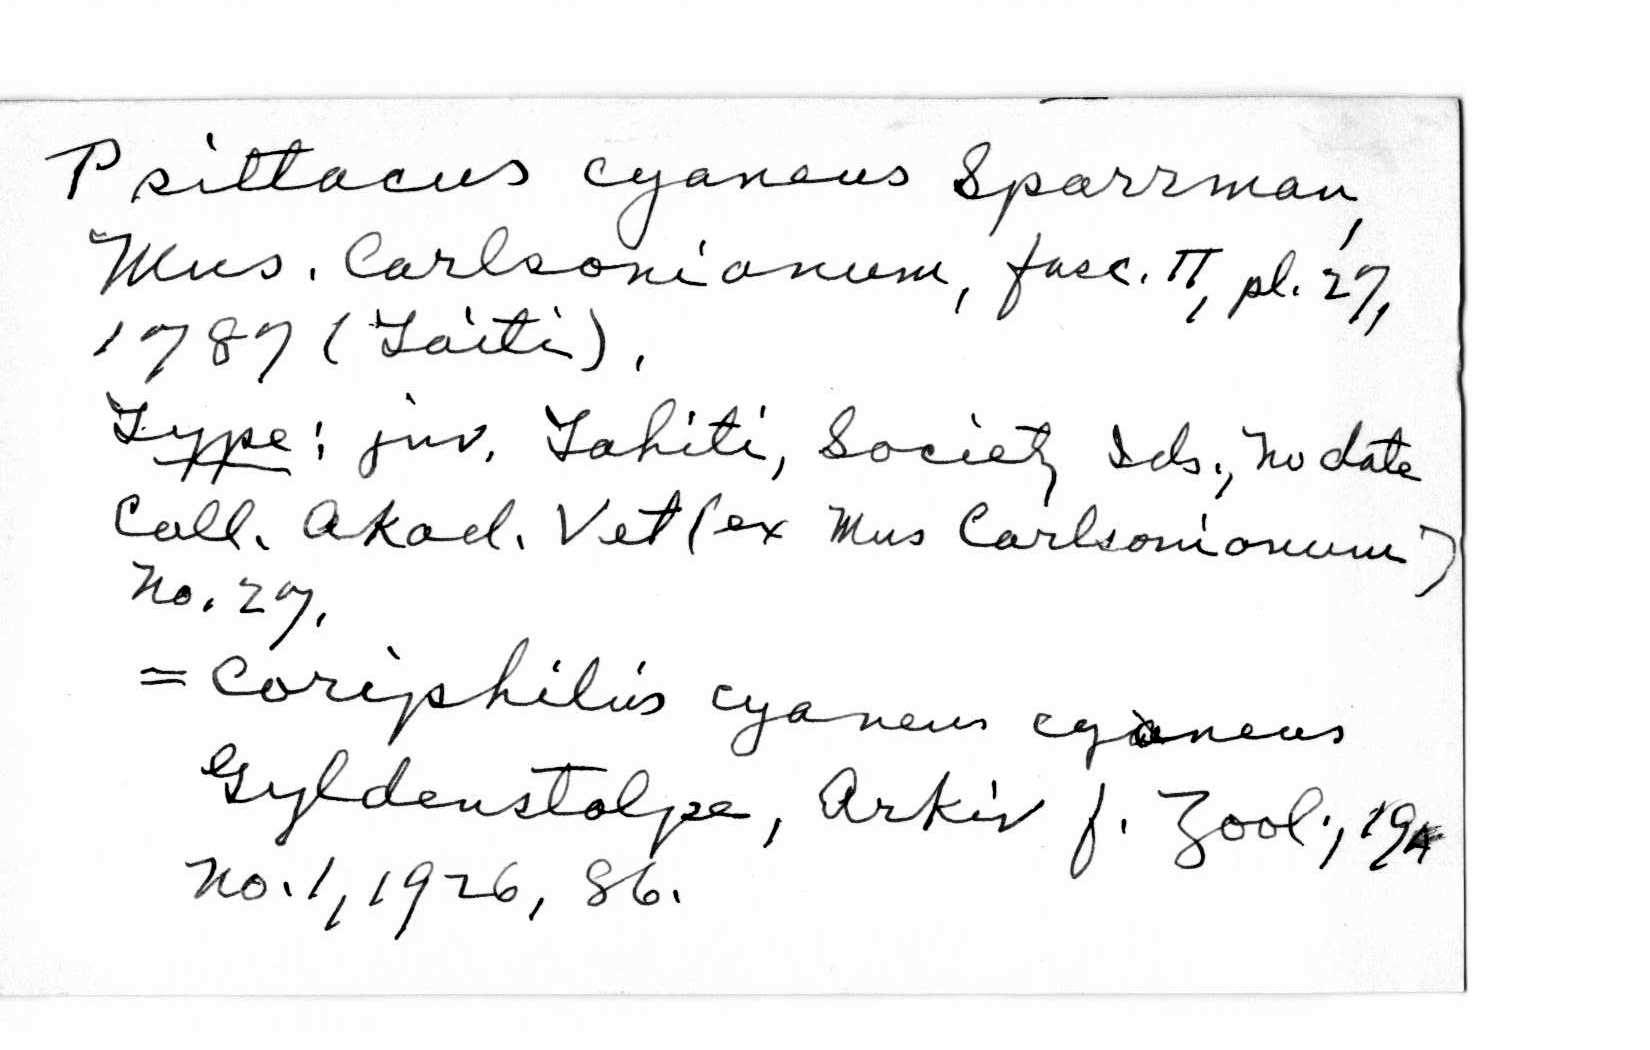 Psittacus cyaneus Sparrman,
Mus. Carlsonianum, fasc. II, pl. 27,
1787 (Taiti).
Type: juv. Tahiti, Society Ids., no date
Coll. Akad. Vet (ex Mus Carlsonianum)
No. 27.
= Coriphilus cyaneus cyaneus
Gyldenstolpe, Arkiv f. Zool., 19A
No. 1, 1926, 86.